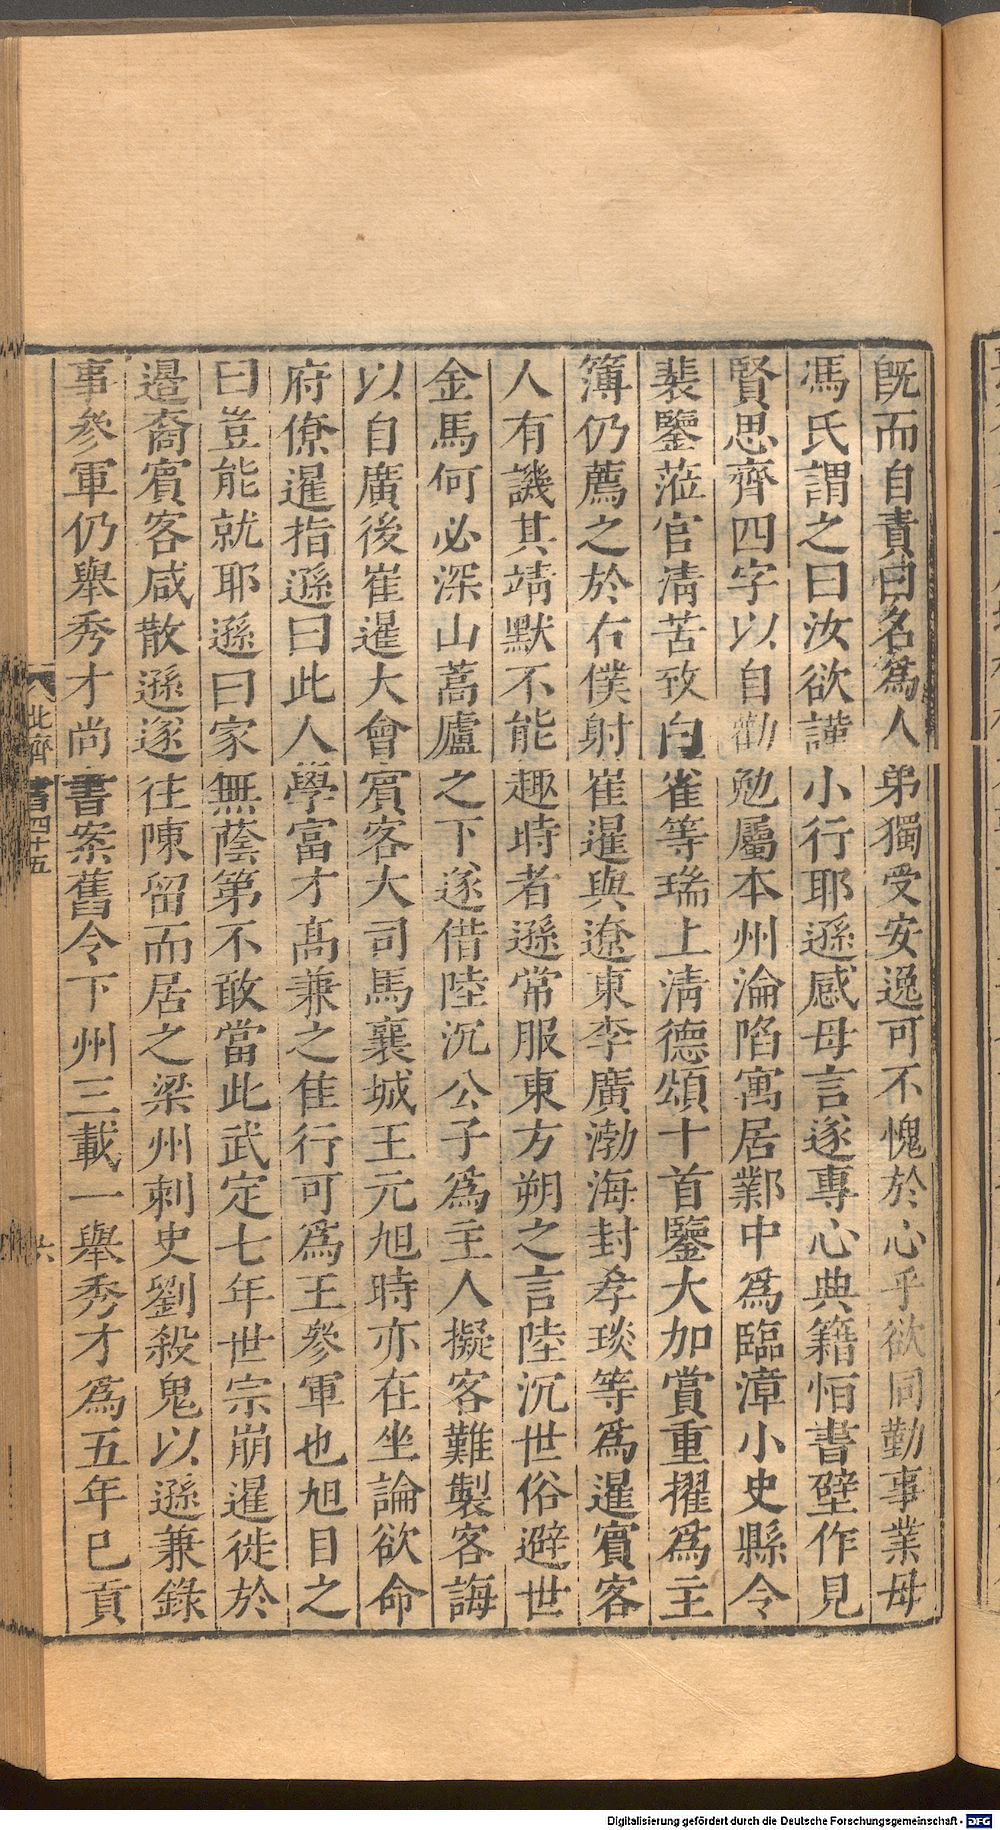 旣而自責曰名爲人弟獨受安逸可不愧於心乎欲同勤事業母
馮氏謂之曰汝欲謹小行耶遜感母言遂專心典籍恒書壁作見
賢思齊四字以自勸勉屬本州淪陷寓居鄴中爲臨漳小史縣令
裴鑒蒞官淸苦致白雀等瑞上淸德頌十首鑒大加賞重擢爲主
簿仍薦之於右僕射崔暹與遼東李廣渤海封孝琰等爲暹賓客
人有譏其靖默不能趣時者遜常服東方朔之言陸沉世俗避世
金馬何必深山蒿廬之下遂借陸沉公子爲主人擬客難製客誨
以自廣後崔暹大會賓客大司馬襄城王元旭時亦在坐論欲命
府僚暹指遜曰此人學富才高兼之隹行可爲王參軍也旭目之
曰豈能就耶遜曰家無蔭第不敢當此武定七年世宗崩暹徙於
邊裔賓客咸散遜遂往陳留而居之梁州刺史劉殺鬼以遜兼錄
事參軍仍舉秀才尚書案舊令下州三載一舉秀才爲五年已貢
北齊書四十五 六
Digitalisierung gefördert durch die Deutsche Forschungsgemeinschaft - DFG